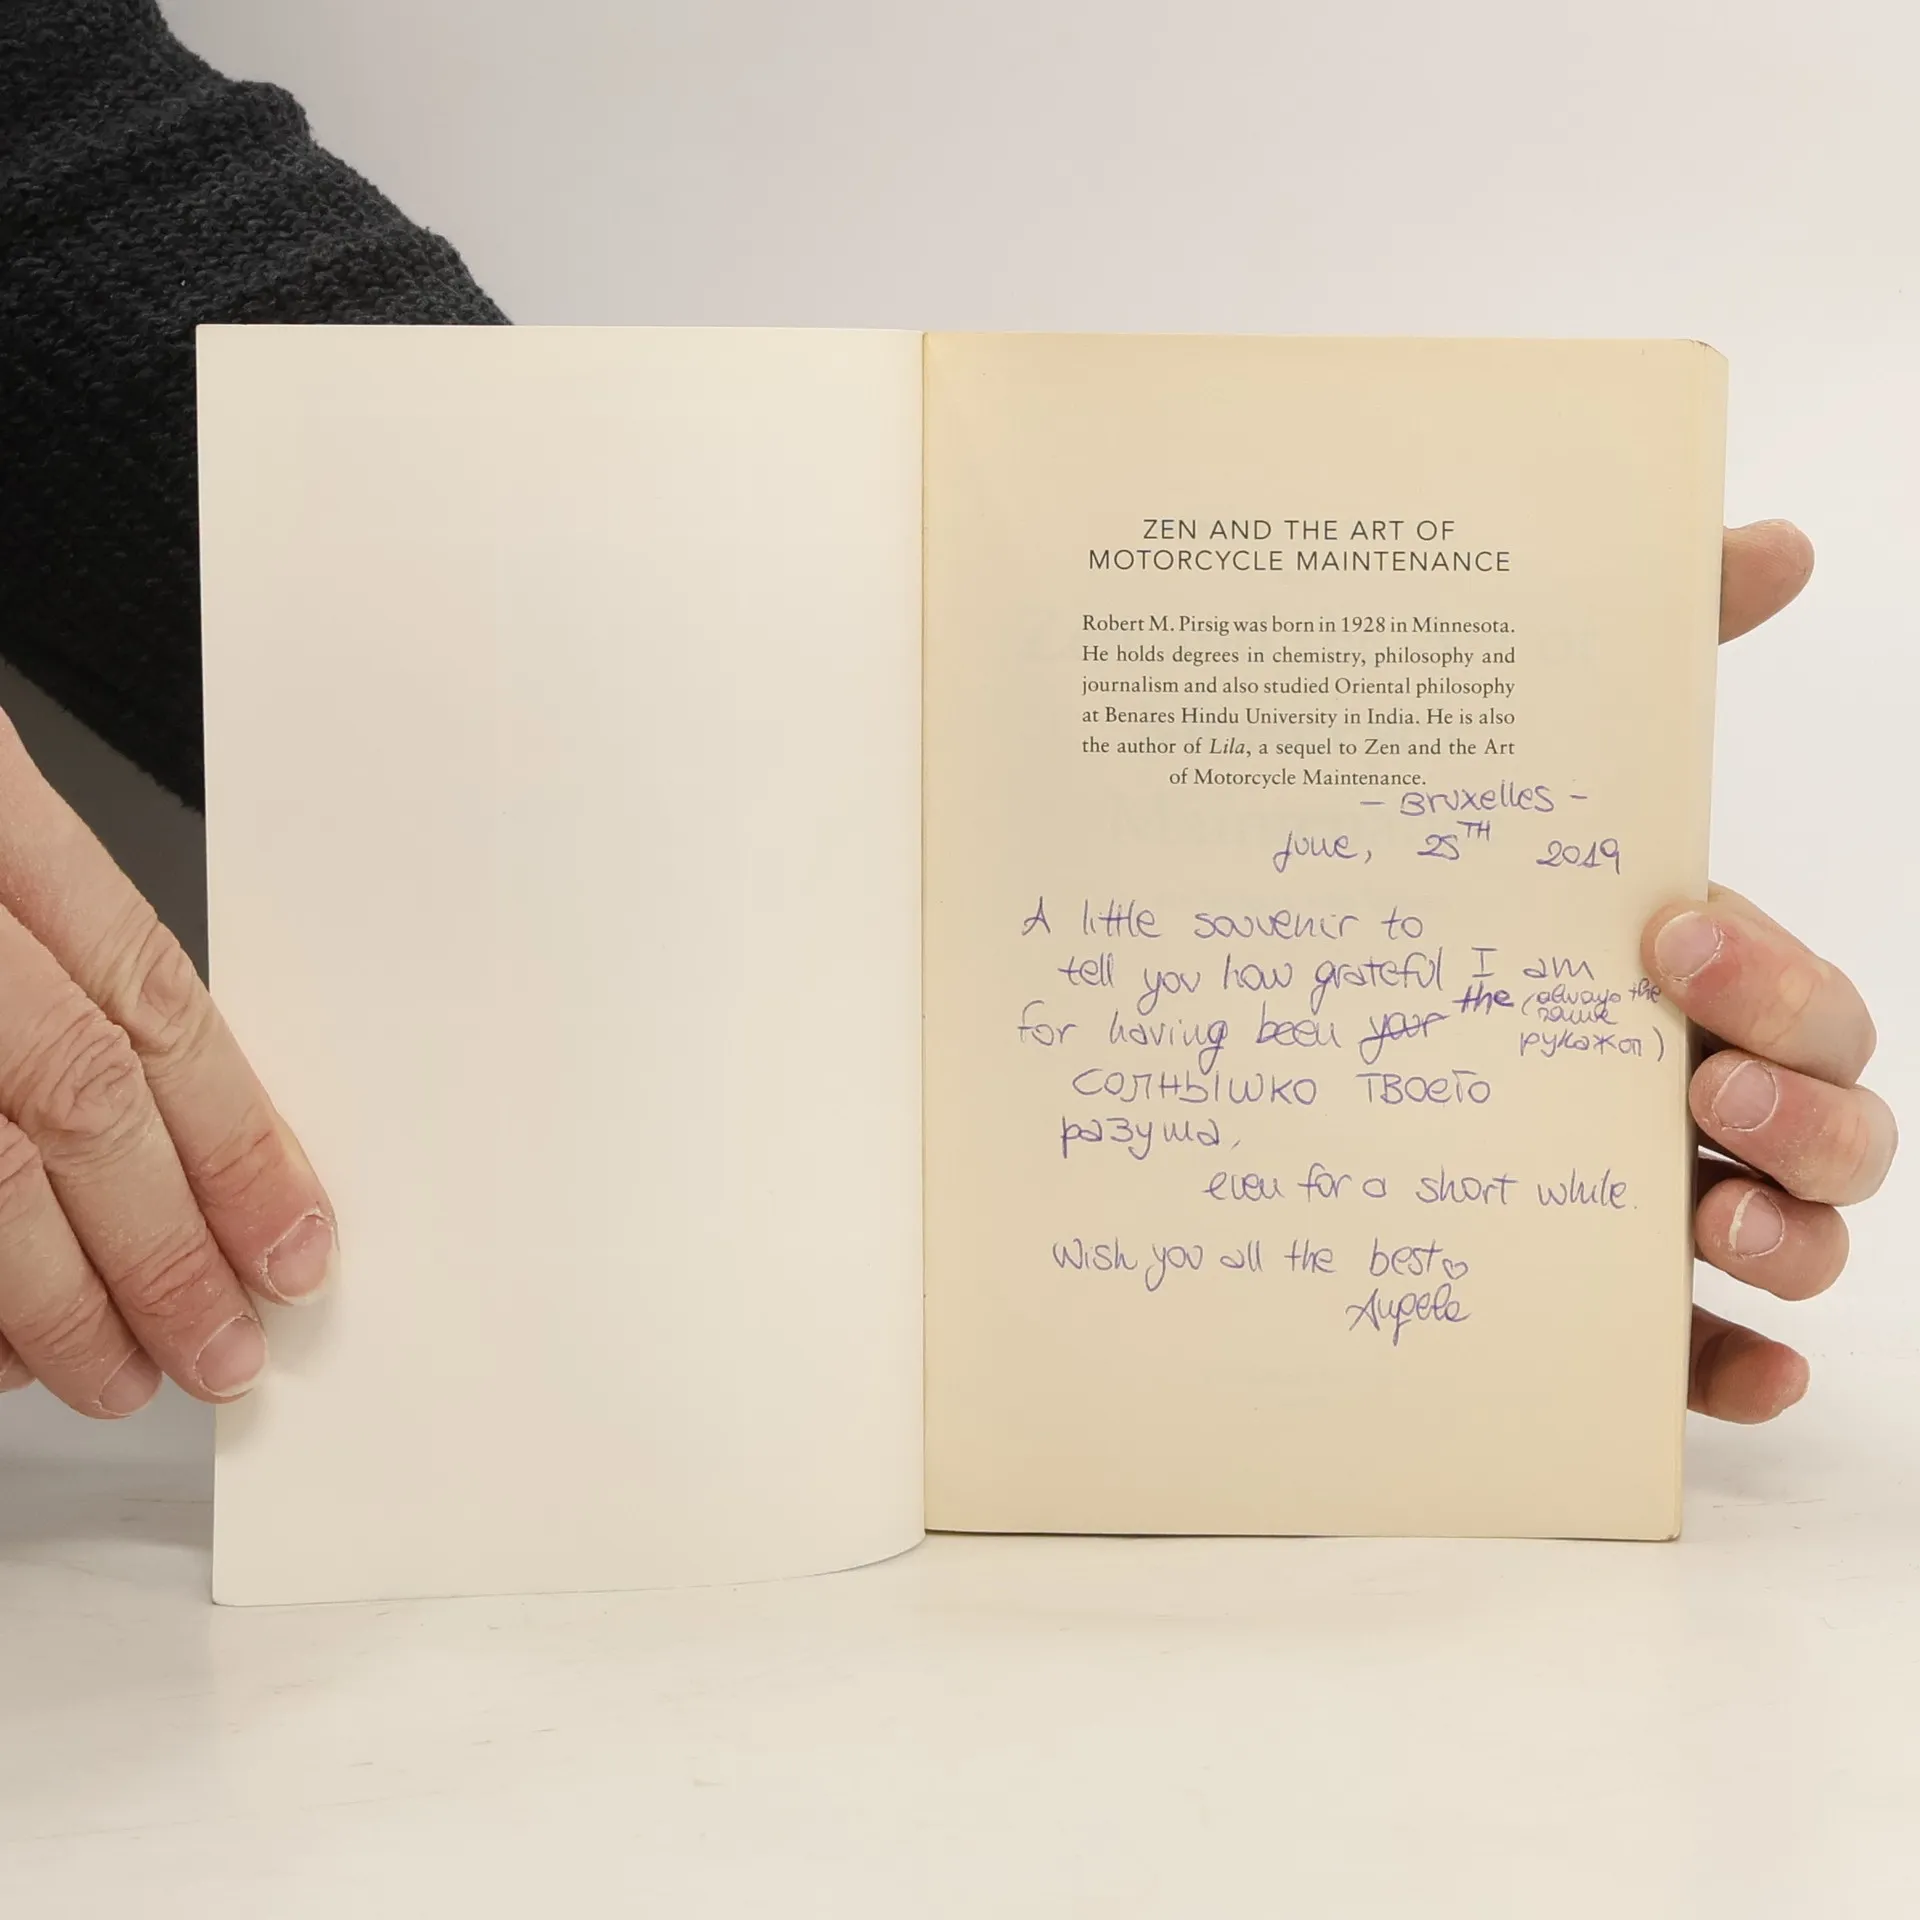 ZEN AND THE ART OF
MOTORCYCLE MAINTENANCE
Robert M. Pirsig was born in 1928 in Minnesota.
He holds degrees in chemistry, philosophy and
journalism and also studied Oriental philosophy
at Benares Hindu University in India. He is also
the author of Lila, a sequel to Zen and the Art
of Motorcycle Maintenance.
- Bruxelles -
June, 25TH 2019
A little souvenir to
tell you how grateful I am
for having been your the (always the
same
рукажоп)
солнышко твоего
разума,
even for a short while.
Wish you all the best
Angela